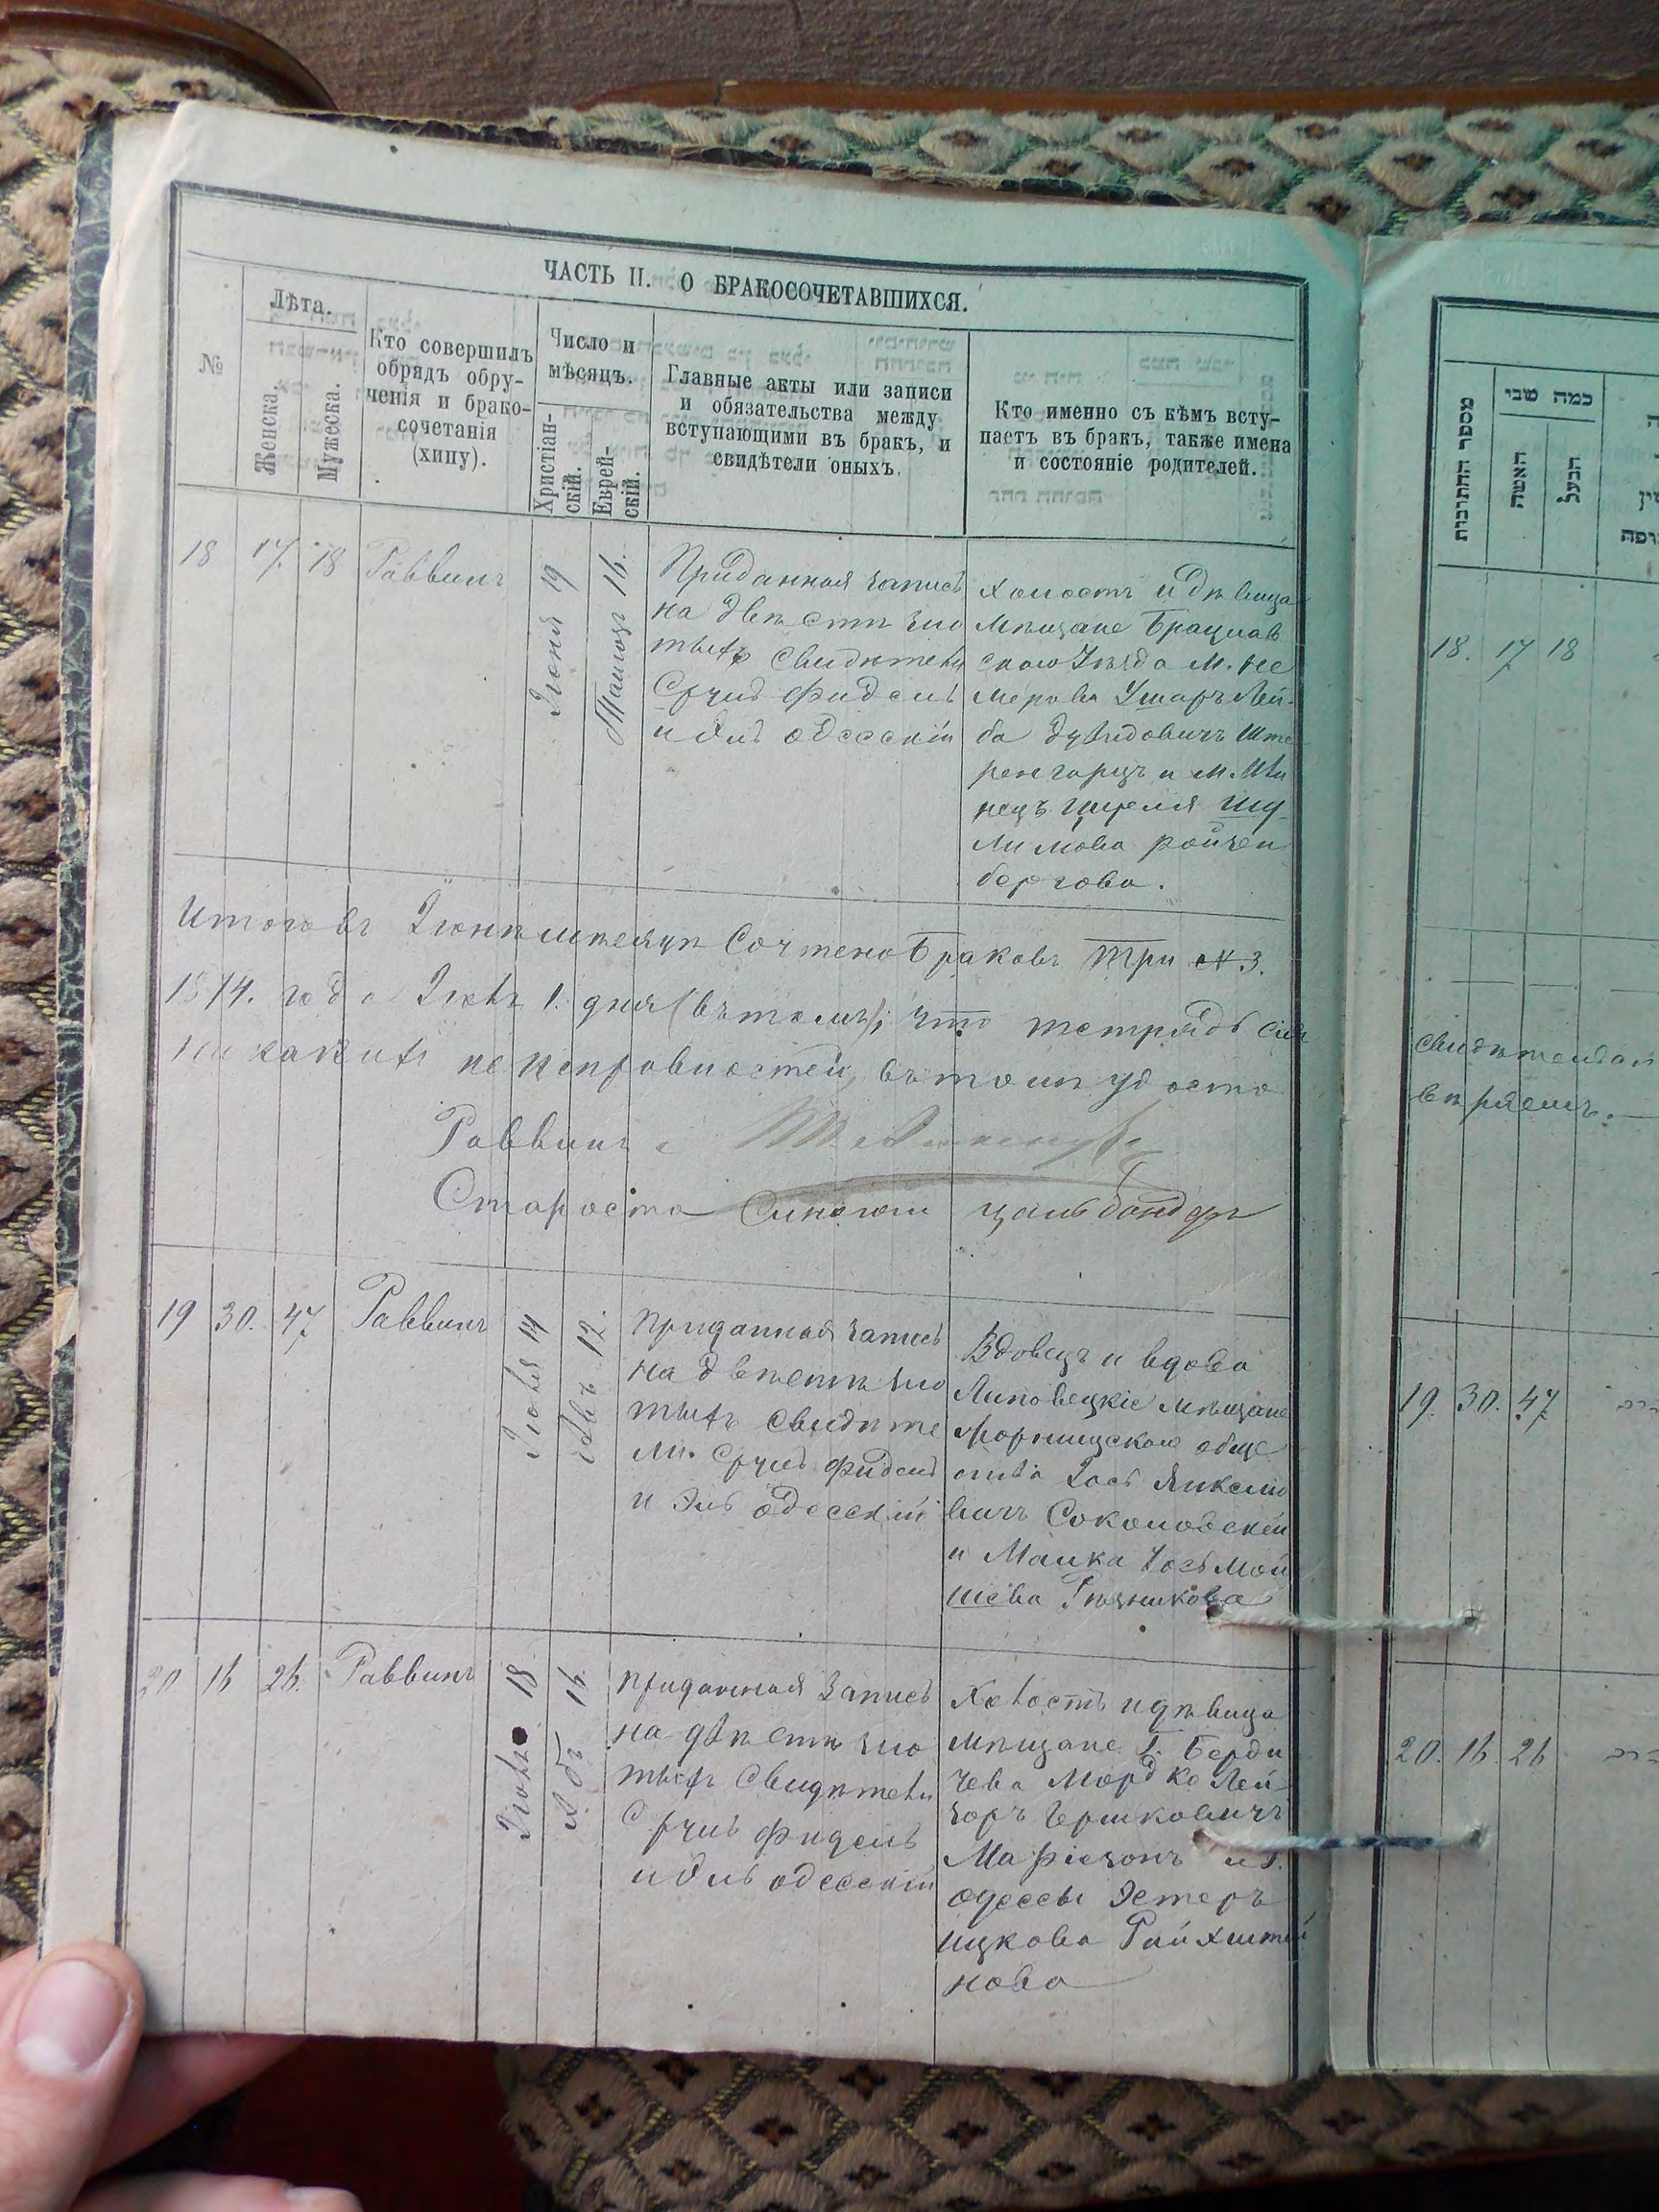 ЧАСТЬ II. О БРАКОСОЧЕТАВШИХСЯ.
№
Лѣта.
Женска.
Мужеска.
Кто совершилъ
обрядъ обру-
ченія и брако-
сочетанія
(хипу).
Число и
мѣсяцъ.
Христіан-
скій.
Еврей-
скій.
Главные акты или записи
и обязательства между
вступающими въ бракъ, и
свидѣтели оныхъ.
Кто именно съ кѣмъ всту-
паетъ въ бракъ, также имена
и состояніе родителей.
18 17. 18 Раввинъ
Іюня 19
16.
Приданная запись
на двѣсти зло
тыхъ свидѣтели
Сруль Фидель
и Эль Одесскій
Холостъ и дѣвица
Мѣщане Брацлав
скаго Уѣзда м. Не
мерова Ушеръ Лей-
ба Дувидовичъ Ште
ренгарцъ и м. Иль
нецъ Циреля Шу
лимова Ройзен
бергова.
Итого въ Іюнѣ мѣсяцѣ Сочтено Браковъ три № 3.
1874. года Іюля 1. дня (въ томъ); что тетрядь сия
ни какихъ не исправностей, въ томъ удосто
Раввинъ
Староста Синагоги Цальбандеръ
19 30. 47 Раввинъ
Іюля 14
Авъ 12.
Приданная запись
на двѣсти зло
тыхъ свидѣте
ли. Сруль Фидель
и Эль Одесскій
Вдовецъ и вдова
Липовецкіе мѣщане
общ
ства Іось Янкелио
вичъ Соколовскій
и Малка Іось Мой
шева Гѣчникова
20 16 26. Раввинъ
Іюля 18
Абъ 16.
Приданная Запись
на двѣсти зло
тыхъ Свидѣтели
Сруль Фидель
и Эль Одесскій
Холостъ и дѣвица
мѣщане Г. Берди
чева Мордко Лей
зоръ Гершковичъ
и Г.
Одессы Эстеръ
Ицкова Райхштей
нова
מספר החתונות
כמה שני
האשה
הבעל
18. 17 18
свидѣтельст
вѣряемъ.
19. 30. 47
20. 16. 26